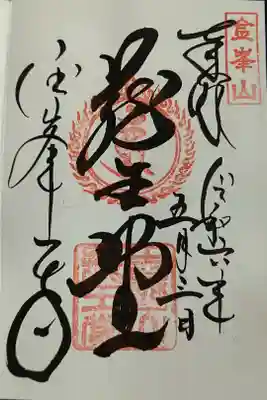 金峯山
奉拝 令和六年
五月三日
蔵王堂
金峯山寺